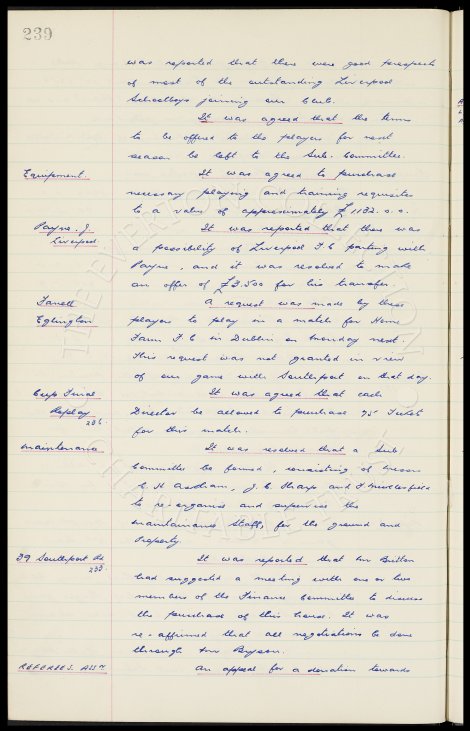 239
was reported that there were good prospects
of most of the outstanding Liverpool
Schoolboys joining our Club.
It was agreed that the terms
to be offered to the players for next
season be left to the Sub. Committee.
Equipment. It was agreed to purchase
necessary playing and training requisites
to a value of approximately £1132. 0. 0.
Payne. J. It was reported that there was
Liverpool. a possibility of Liverpool F.C parting with
Payne, and it was resolved to make
an offer of £3.500 for his transfer.
Farrell A request was made by these
Eglington players to play in a match for Home
Farm F.C in Dublin on Monday next.
This request was not granted in view
of our game with Southport on that day.
Cup Final It was agreed that each
Replay Director be allowed to purchase 75 Tickets
236. for this match.
Maintenance It was resolved that a Sub/
Committee be formed, consisting of Messrs
C. H. Askham, J. C. Sharp and
to re-organise and supervise the
Maintenance Staffs, for the ground and
Property
39 Southport Rd It was reported that Mr Britton
had suggested a meeting with one or two
members of the Finance Committee to discuss
the purchase of this house. It was
re-affirmed that all negotiations be done
through Mr
REFEREES. ASSN An appeal for a donation towards